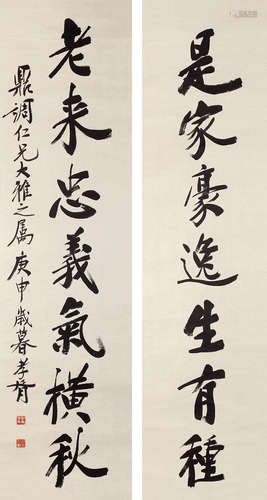 是家豪逸生有種
老来忠義氣橫秋
鼎調仁兄大雅之属 庚申歲暮孝胥